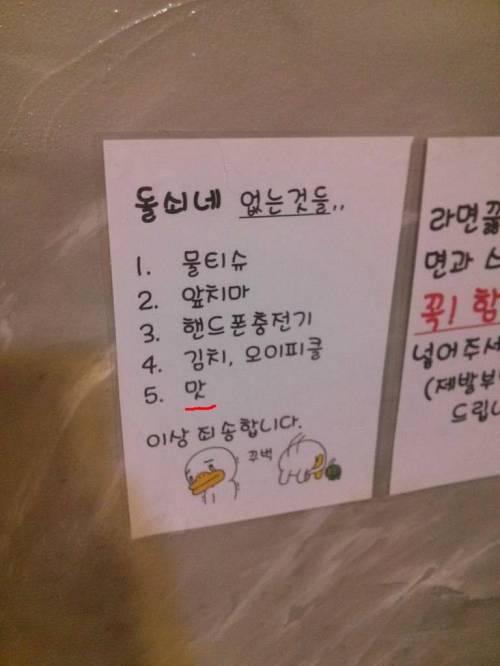 돌쇠네 없는것들..
1. 물티슈
2. 앞치마
3. 핸드폰충전기
4. 김치, 오이피클
5. 맛
이상 죄송합니다.
꾸벅
라면
면과
꼭! 함
넣어주세
(제발부
드립니